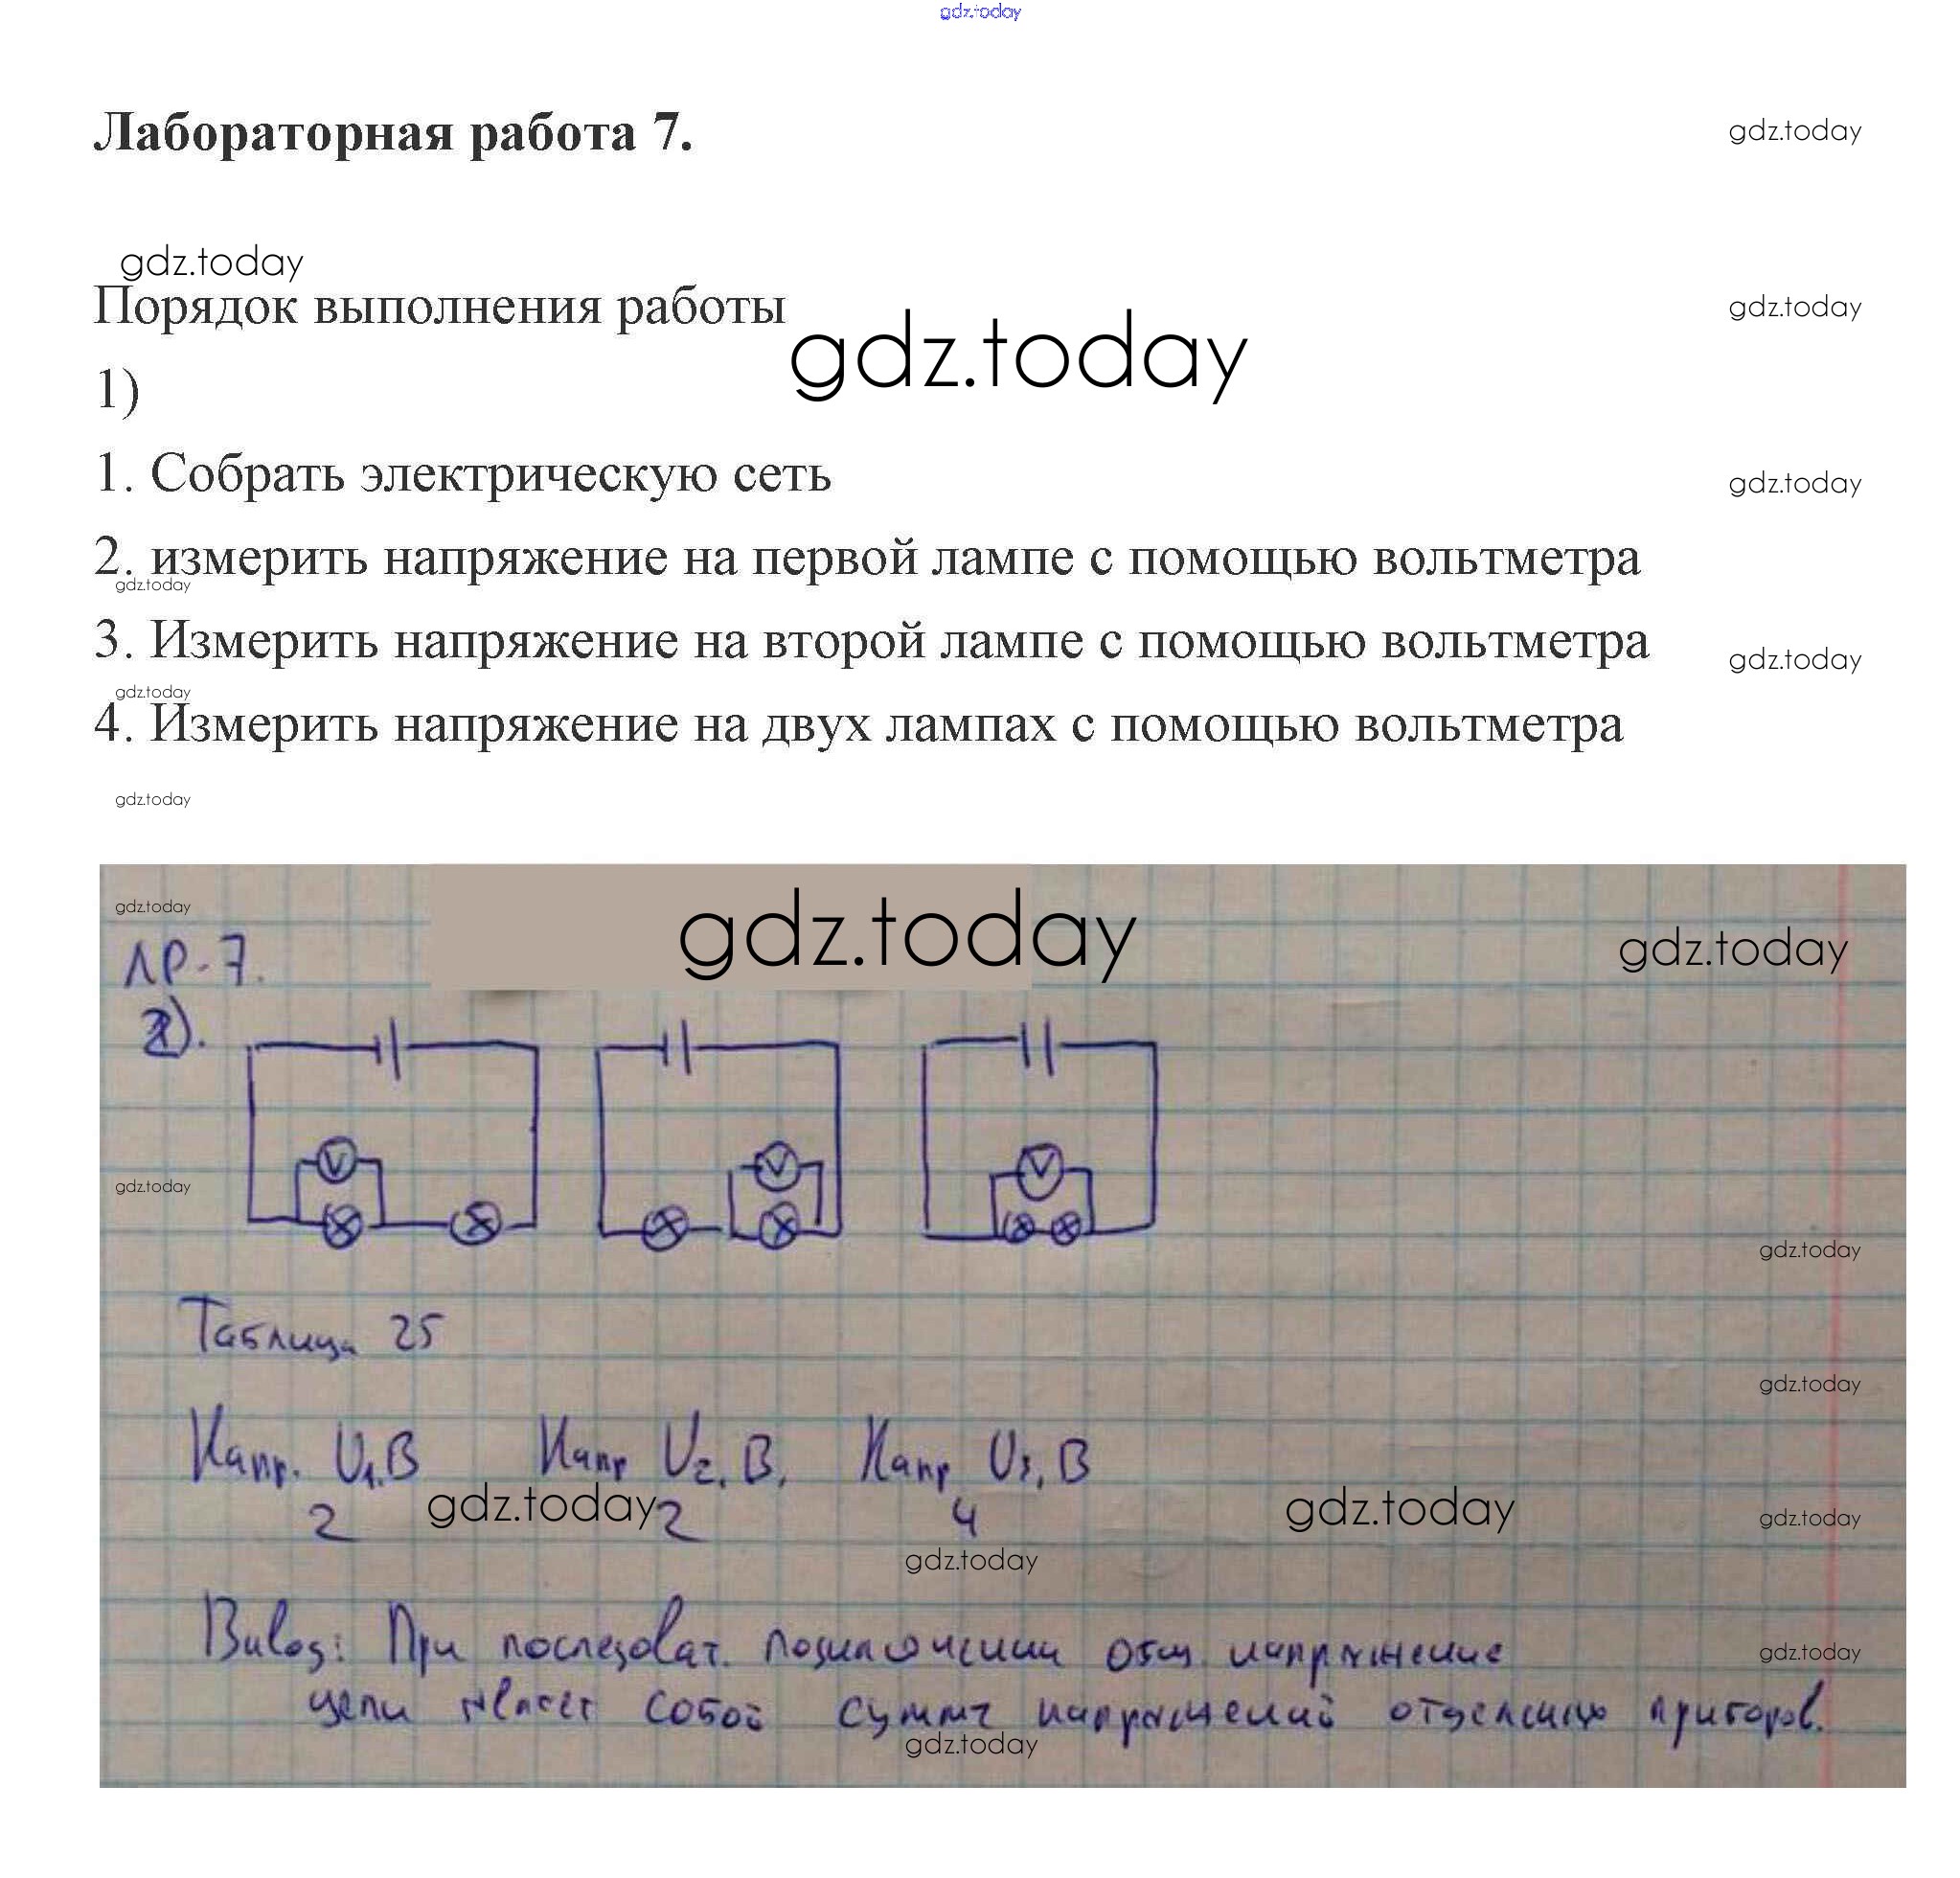 gdz.today
Лабораторная работа 7.
gdz.today
gdz.today
Порядок выполнения работы
gdz.today
gdz.today
1)
1. Собрать электрическую сеть
gdz.today
2. измерить напряжение на первой лампе с помощью вольтметра
gdz.today
3. Измерить напряжение на второй лампе с помощью вольтметра
gdz.today
gdz.today
4. Измерить напряжение на двух лампах с помощью вольтметра
gdz.today
gdz.today
gdz.today
gdz.today
ЛР-7.
2).
V V V
gdz.today
gdz.today
Таблица 25
gdz.today
Напр. U1, В Напр U2, В, Напр U3, В
gdz.today
gdz.today
2 2 4
gdz.today
gdz.today
Вывод: При последоват. подключении общ. напряжение
gdz.today
цепи собой сумму напряжений отдельных приборов.
gdz.today